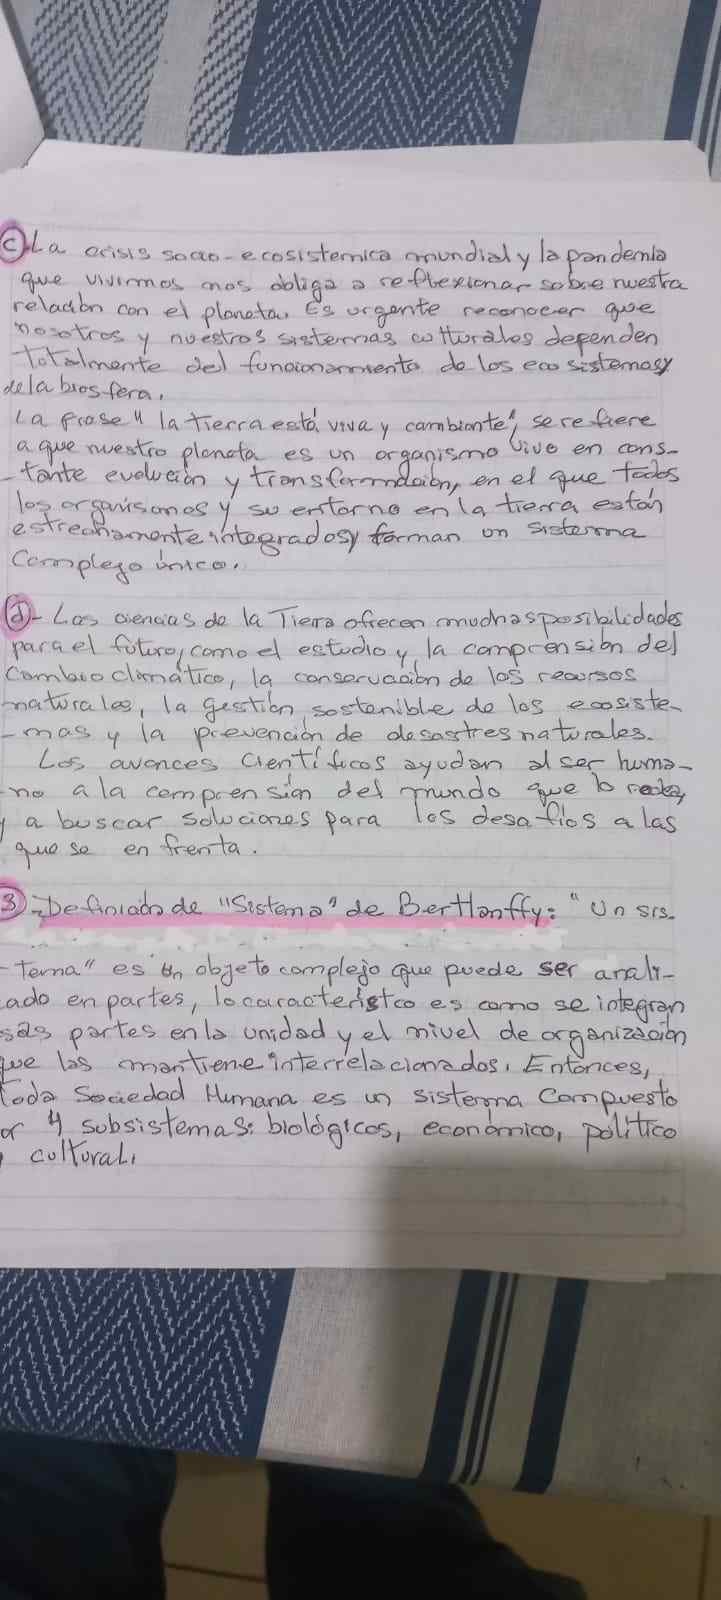 c) La crisis socio-ecosistemica mundial y la pandemia
que vivimos nos obliga a reflexionar sobre nuestra
relación con el planeta. Es urgente reconocer que
nosotros y nuestros sistemas culturales dependen
totalmente del funcionamiento de los ecosistemas y
de la biosfera.
La frase "la tierra está viva y cambiante", se refiere
a que nuestro planeta es un organismo vivo en cons-
-tante evolución y transformación, en el que todos
los organismos y su entorno en la tierra están
estrechamente integrados y forman un sistema
Complejo único.
d)- Las ciencias de la Tierra ofrecen muchas posibilidades
para el futuro, como el estudio y la comprensión del
Cambio climático, la conservación de los recursos
naturales, la gestión sostenible de los ecosiste-
-mas y la prevención de desastres naturales.
Los avances científicos ayudan al ser huma-
-no a la comprensión del mundo que lo rodea,
y a buscar soluciones para los desafíos a las
que se en frenta.
3)-Definición de "Sistema" de Bertlanffy: "Un sis-
-tema" es un objeto complejo que puede ser anali-
ado en partes, lo característco es como se integran
sas partes en la unidad y el nivel de organización
que las mantiene interrelacionados. Entonces,
Toda Sociedad Humana es un sistema Compuesto
or 4 subsistemas: biológicos, económico, político
y cultural.